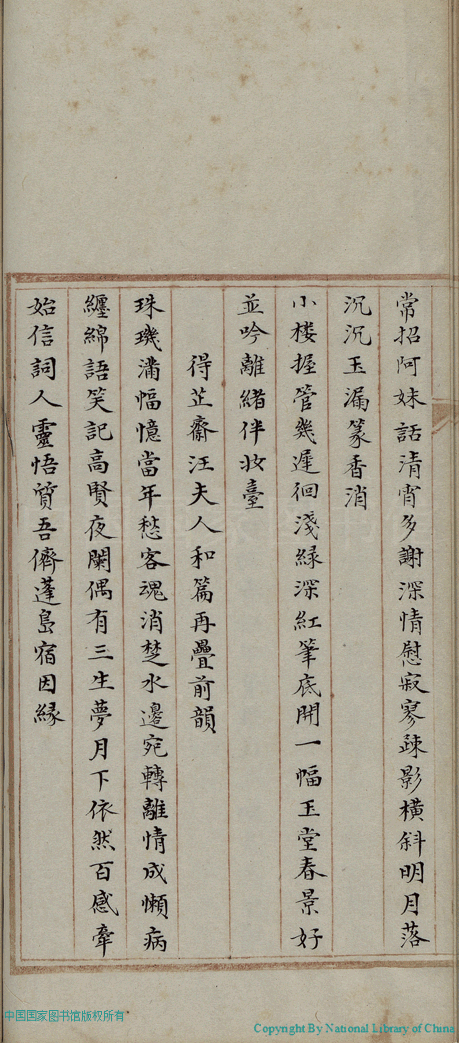 常招阿妹話清宵多謝深情慰寂寥疎影橫斜明月落
沉沉玉漏篆香消
小楼握管幾遲徊淺緑深紅筆底開一幅玉堂春景好
並吟離緒伴妝臺
得芷齋汪夫人和篇再疊前韻
珠璣滿幅憶當年愁客魂消楚水邊宛轉離情成懶病
纏綿語笑記高賢夜闌偶有三生夢月下依然百感牽
始信詞人靈悟質吾儕蓬島宿因緣
中国国家图书馆版权所有
Copyright By National Library of China